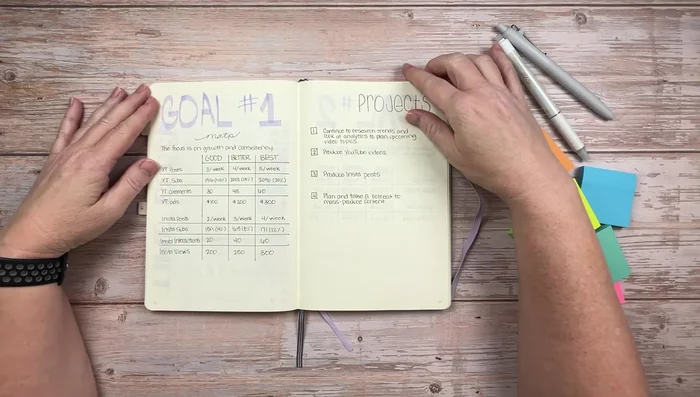 GOAL #1
The focus is on growth and consistency
GOOD BETTER BEST
3/week 4/week 5/week
YT Subs
YT Comments 30 45 60
$100 $200 $300
Insta Posts 2/week 3/week 4/week
Insta Subs
Insta Interactions 20 40 60
Insta Views 200 250 300
Projects
1 Continue to research trends and
look at analytics to plan upcoming
video topics.
2 Produce YouTube videos.
3 Produce Insta posts
4 Plan and take a retreat to
mass-produce content